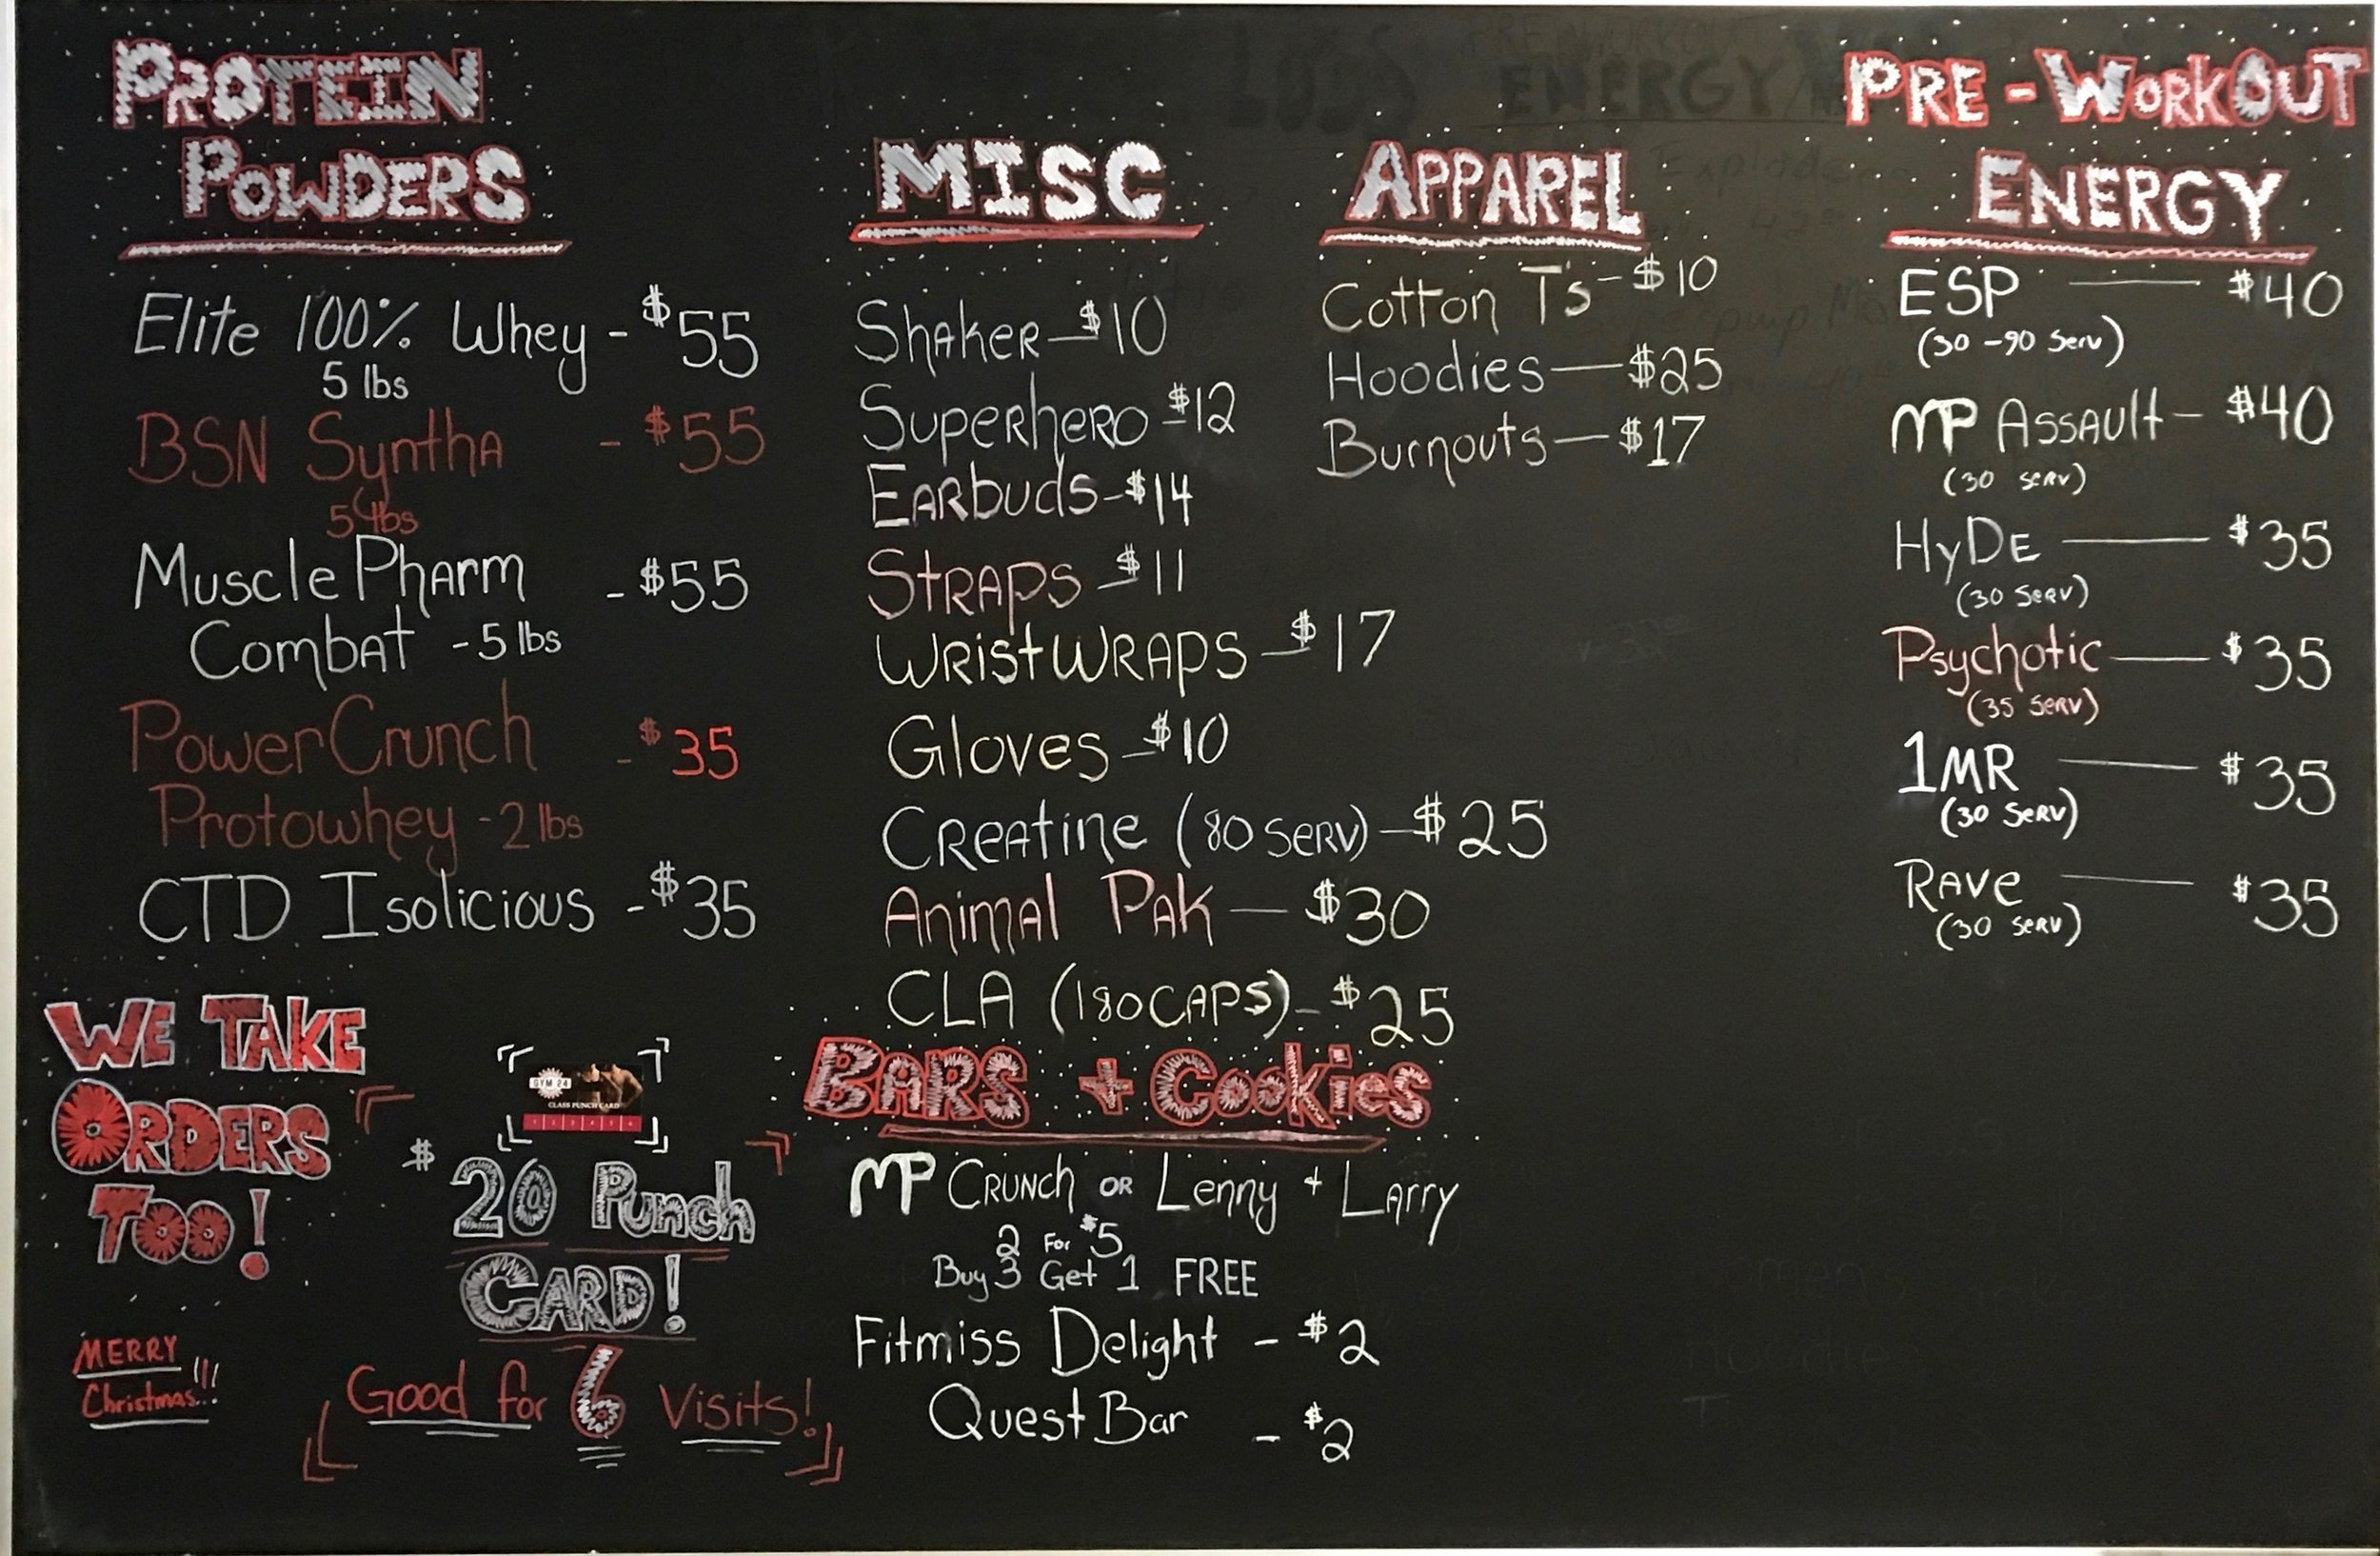 PROTEIN
POWDERS
Elite 100% Whey - $55
5 lbs
BSN Syntha - $55
5 lbs
Muscle Pharm - $55
Combat - 5 lbs
Power Crunch - $35
Protowhey - 2 lbs
CTD Isolicious - $35
WE TAKE
ORDERS
TOO!
MERRY
Christmas!!!
GYM 24
CLASS PUNCH CARD
1 2 3 4 5 6
$20 Punch
CARD!
Good for 6 Visits!
MISC
Shaker - $10
Superhero - $12
Earbuds - $14
Straps - $11
Wrist Wraps - $17
Gloves - $10
Creatine (80 serv) - $25
Animal Pak - $30
CLA (180 caps) - $25
BARS + Cookies
MP Crunch or Lenny + Larry
2 For $5
Buy 3 Get 1 FREE
Fitmiss Delight - $2
Quest Bar - $2
APPAREL
Cotton T's - $10
Hoodies - $25
Burnouts - $17
PRE-WORKOUT
ENERGY
ESP - $40
(30-90 Serv)
MP Assault - $40
(30 serv)
HyDE - $35
(30 Serv)
Psychotic - $35
(35 Serv)
1MR - $35
(30 Serv)
Rave - $35
(30 Serv)